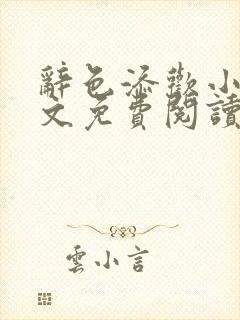 辭色添歡小
文免費閱讀
雲小言